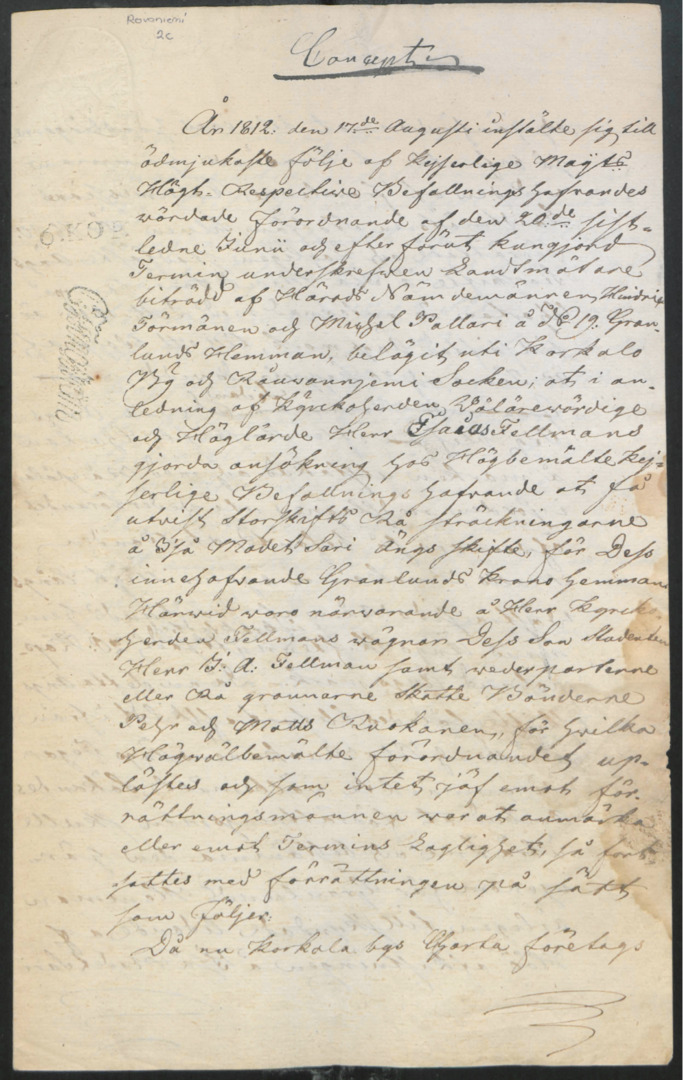 Rovaniemi
2c
Concept
År 1812. den 17de Augusti instälte sig till
ödmjukaste följe af Kejserlige Maÿts
Högt- Respective Befallningshafvandes
wördade Förordnande af den 20de sist-
ledne Junii och efter förut kungjord
Termin underskrefven Landtmätare
biträdd af Härads Nämdemännen Hindric
Törmänen och Michel Pallari å No 19. Gran-
lunds Hemman, belägit uti Korkalo
By och Råuvannjemi Socken; at i an-
ledning af Kyrckoherden Wälärewördige
och Höglärde Herr Esaias Fellmans
gjorda ansökning hos Högbemälte Kej-
serlige Befallningshafvande at få
utvist Storskifts Rå sträckningarne
å så Madet Sari ängs skifte, för Dess
innehafvande Granlunds Krono hemman
Härwid woro närwarande å Herr Kyrck-
herden Fellmans wägnar Dess Son Studenten
Herr I: A: Fellman samt wederparterne
eller Rå grannarne Skatte Bönderne
Pehr och Matts Ruokanen, för hwilka
Högwälbemälte förordnandet up-
lästes och som intet jäf emot för-
rättningsmännen war at anmärka
eller emot Termins Laglighet, så fort-
sattes med förrättningen på sätt
som följer:
Då nu Korkala bys Charta företogs